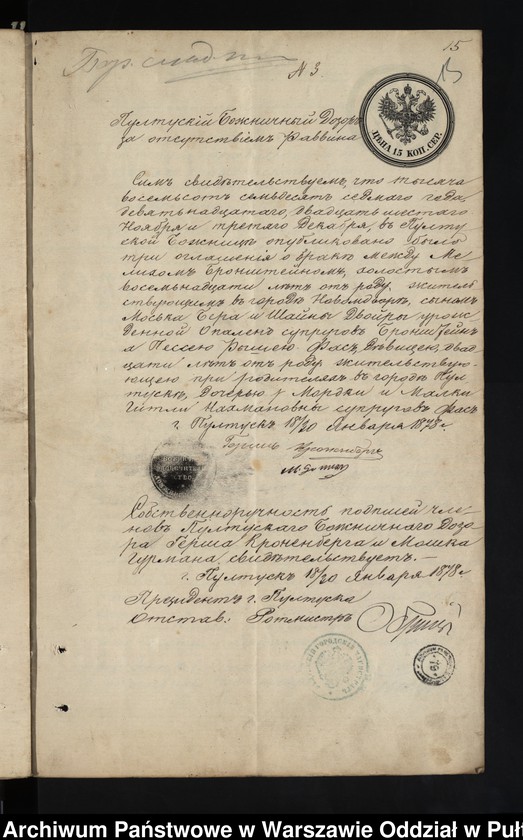 15
13
N 3.
ЦѢНА 15 КОП. СЕР.
Пултускій Божничный Дозоръ
за отсутствіемъ Раввина
Симъ свидѣтельствуемъ, что тысяча
восемьсотъ семьдесятъ седмаго года,
девятнадцатаго, двадцать шестаго
Ноября и третяго Декабря, въ Пулту
ской Божницѣ опубликовано было
три оглашенія о бракѣ между Ме
Бронштейномъ, холостымъ
восемьнадцати лѣтъ отъ роду, житель
ствующимъ въ городѣ сыномъ
Моська Бера и Шайны Двойры урож
денной Опаленъ супруговъ Бронштейнъ
а Пессею Рышлею Фасъ, Дѣвицею, двад
цати лѣтъ отъ роду, жительствую
ющею при родителяхъ въ городѣ Пул
тускѣ, Дочерью Мордки и Малки
Гитли Нахмановны супруговъ Фасъ
г. Пултускъ 18/30 Января 1878 г.
Собственноручность подписей чле
новъ Пултускаго Божничнаго Дозо
ра Герша Кроненберга и Мошка
Гурмана свидѣтельствуетъ. —
г. Пултускъ 18/30 Января 1878 г.
Президентъ г. Пултуска
Отстав: Ротмистръ
Archiwum Państwowe w Warszawie Oddział w Puł